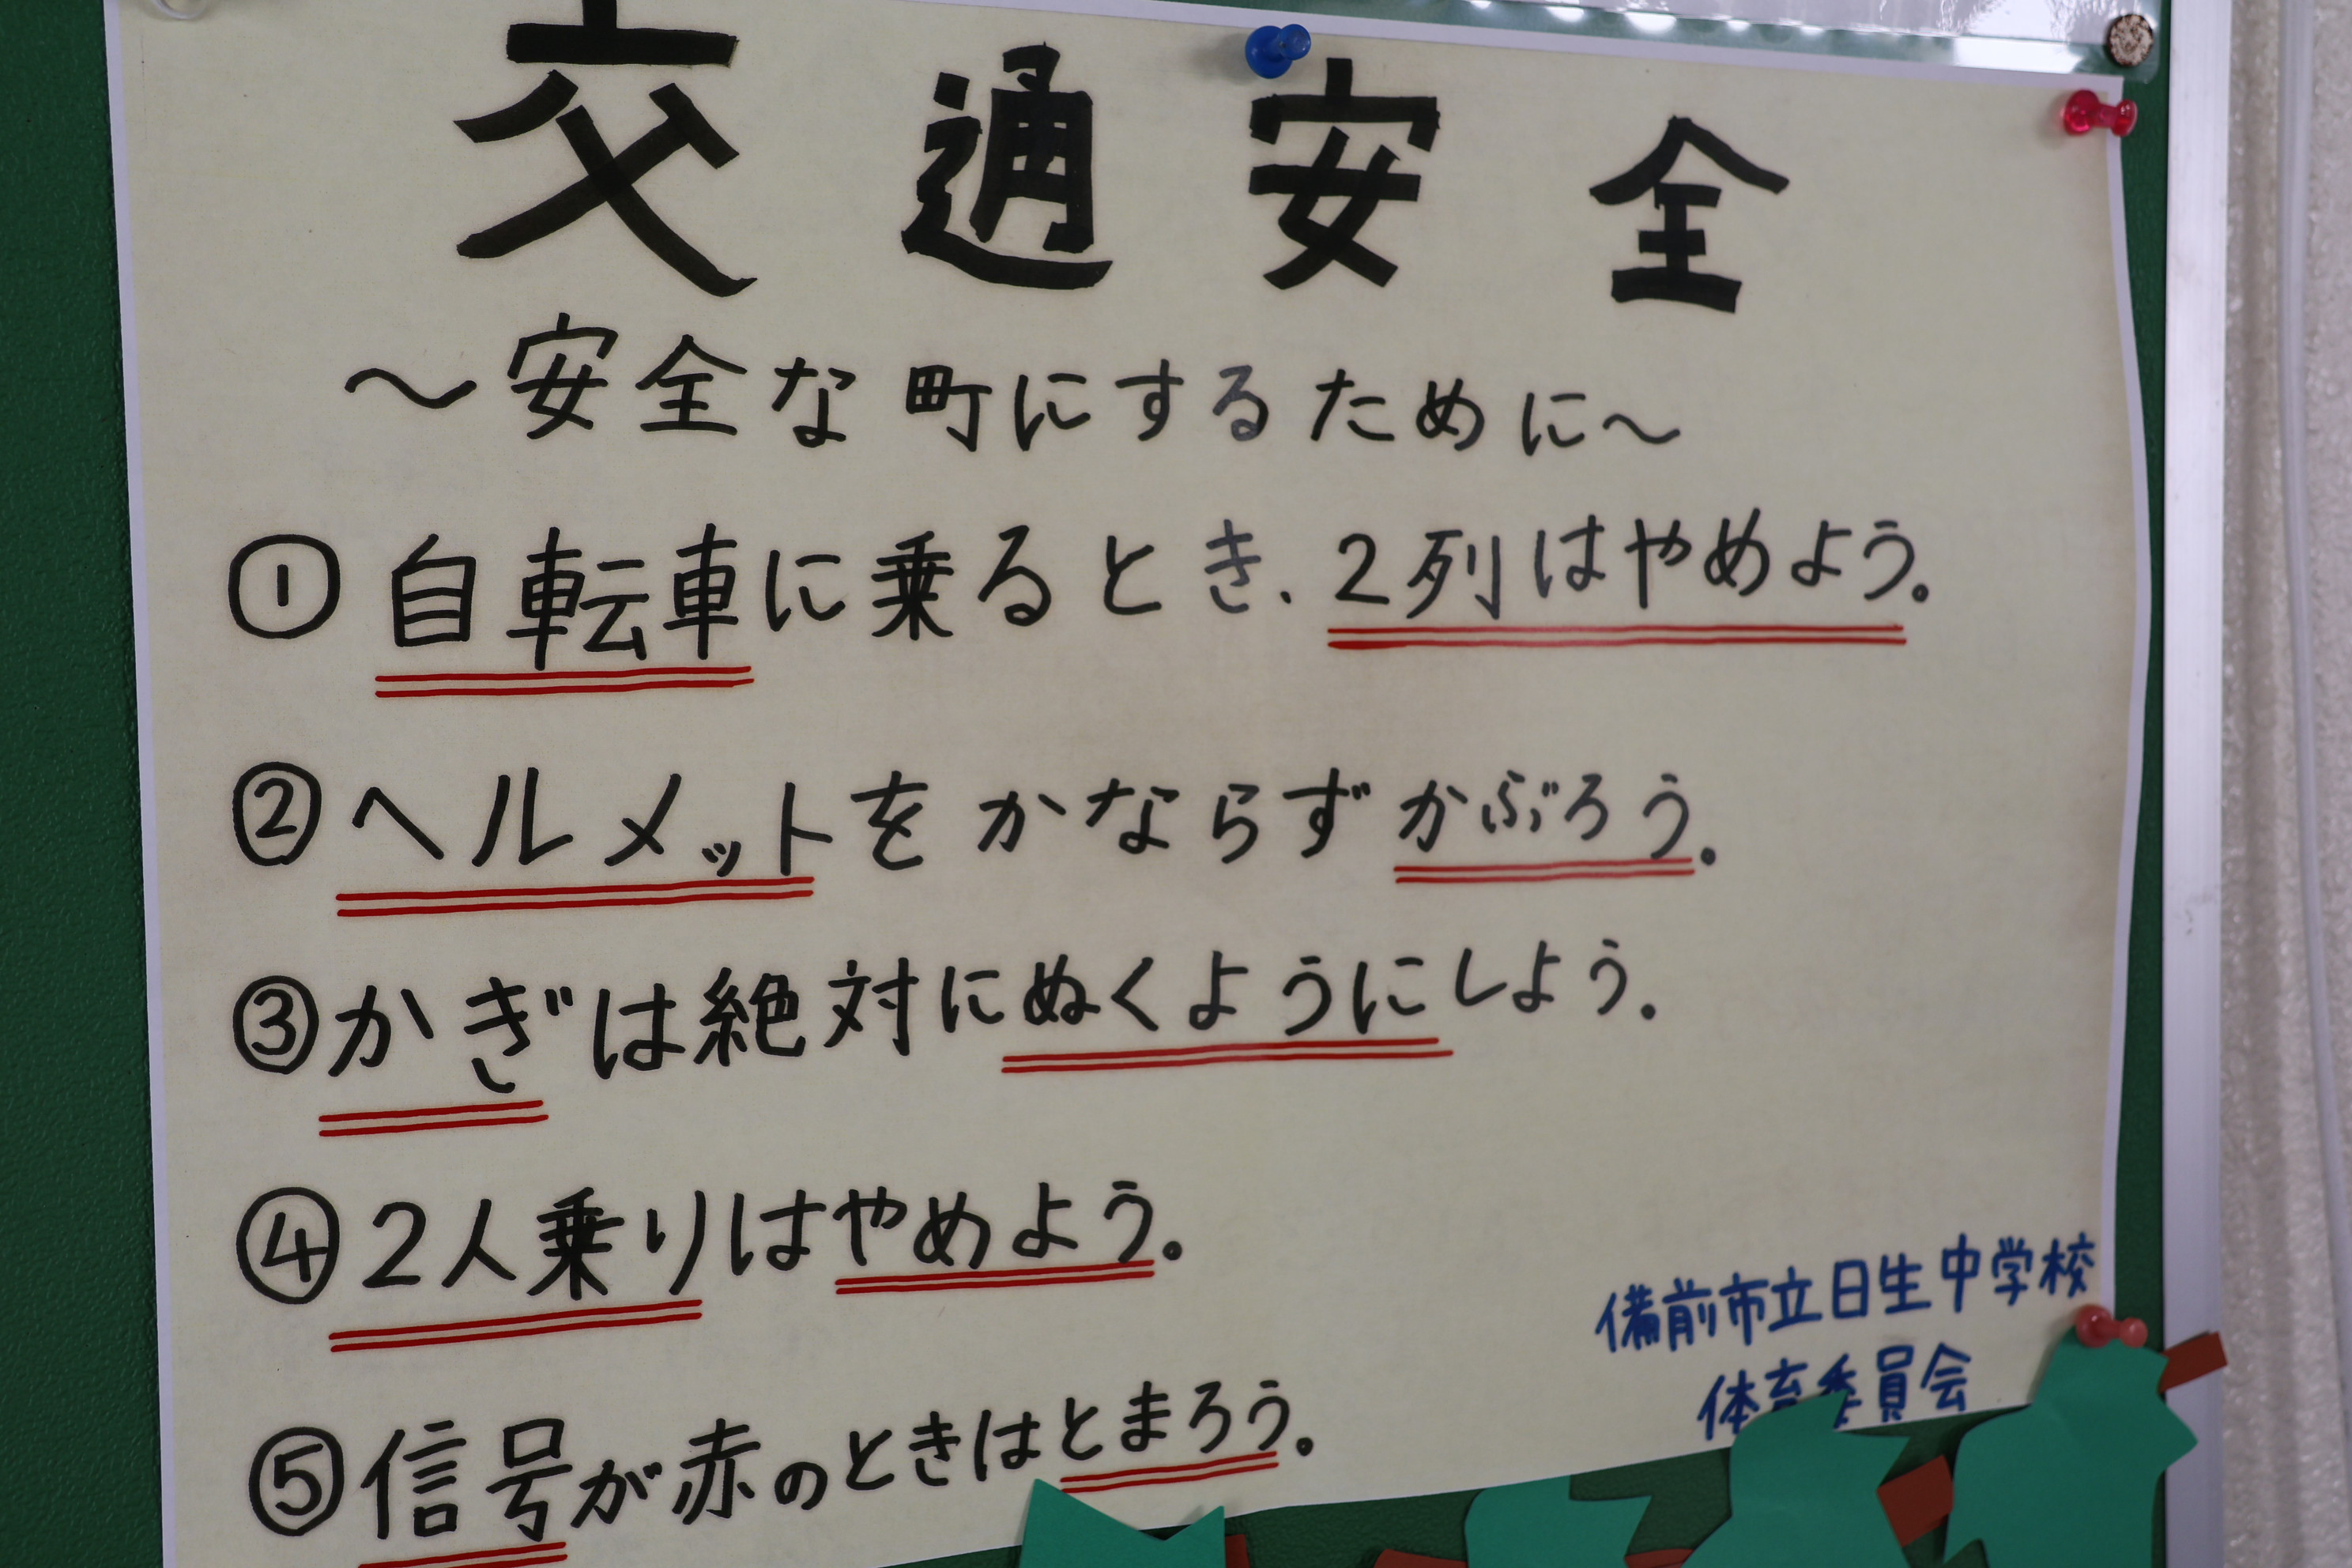 交通安全
～安全な町にするために～
①自転車に乗るとき、2列はやめよう。
②ヘルメットをかならずかぶろう。
③かぎは絶対にぬくようにしよう。
④2人乗りはやめよう。
⑤信号が赤のときはとまろう。
備前市立日生中学校
体育委員会